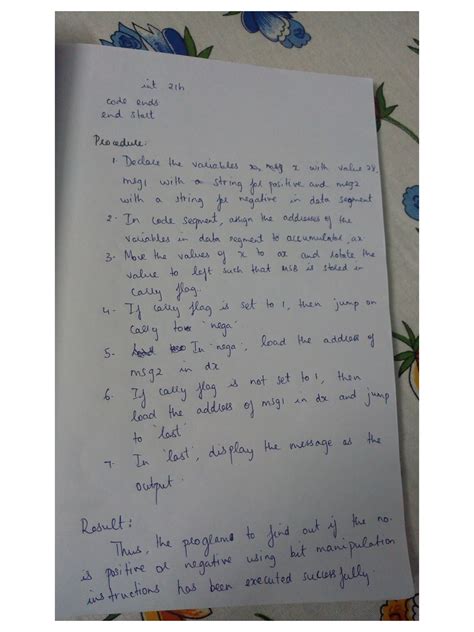 int 21h
code ends
end start
Procedure:
1. Declare the variables x with value 28,
msg1 with a string for positive and msg2
with a string for negative in data segment
2. In code segment, assign the addresses of the
variables in data segment to accumulator, ax
3. Move the values of x to ax and rotate the
value to left such that MSB is stored in
carry flag.
4. If carry flag is set to 1, then jump on
carry to 'nega'.
5. In 'nega', load the address of
msg2 in dx
6. If carry flag is not set to 1, then
load the address of msg1 in dx and jump
to 'last'
7. In 'last', display the message as the
output.
Result:
Thus, the program to find out if the no.
is positive or negative using bit manipulation
instructions has been executed successfully.